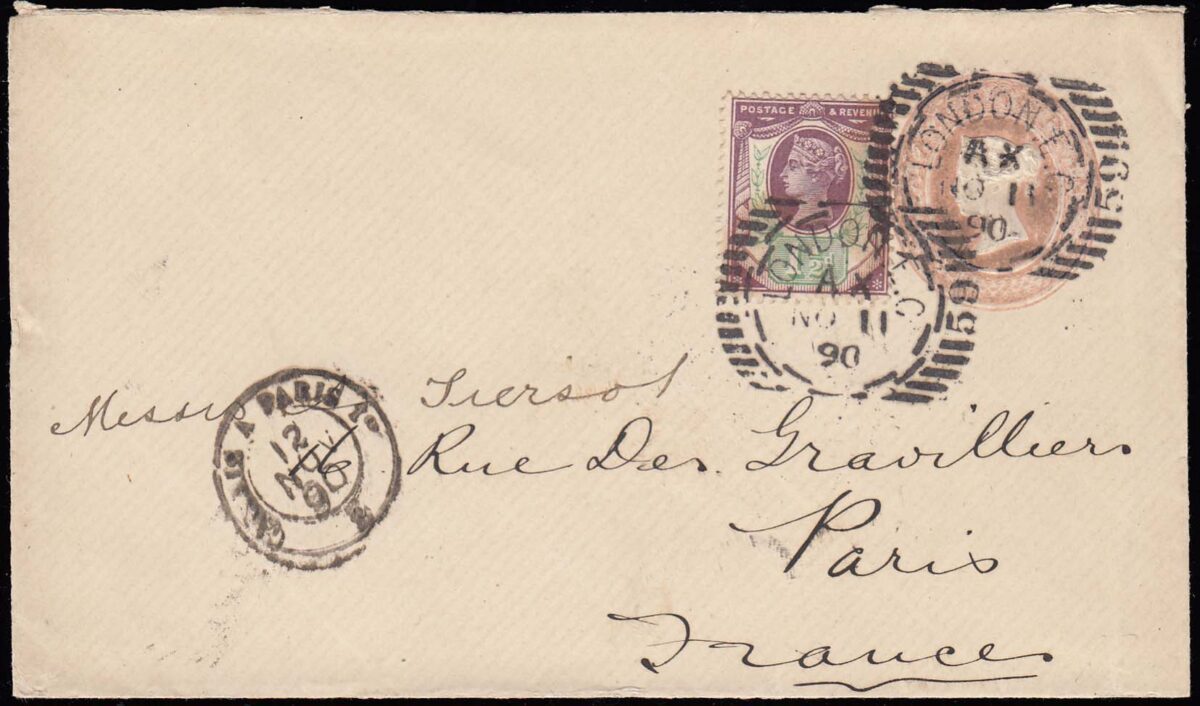 POSTAGE & REVENUE
LONDON.E.C
AX
NO 11
90
59
LONDON.E.C
AX
NO 11
90
59
Messrs Tiersot
CALAIS A PARIS 1º
12
NOV
90
16 Rue Des Gravilliers
Paris
France